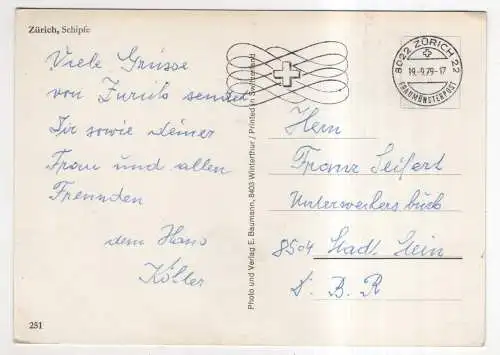 Zürich, Schipfe
Viele Grüsse
von Zürich sendet
Dir sowie deiner
Frau und allen
Freunden
dein Hans
Köller
251
Photo und Verlag E. Baumann, 8403 Winterthur / Printed in Switzerland
8022 ZÜRICH 22
19.-9.79-17
FRAUMÜNSTERPOST
Herrn
Franz Seifert
Unterweihersbuch
8504 Stadt Stein
D. B. R